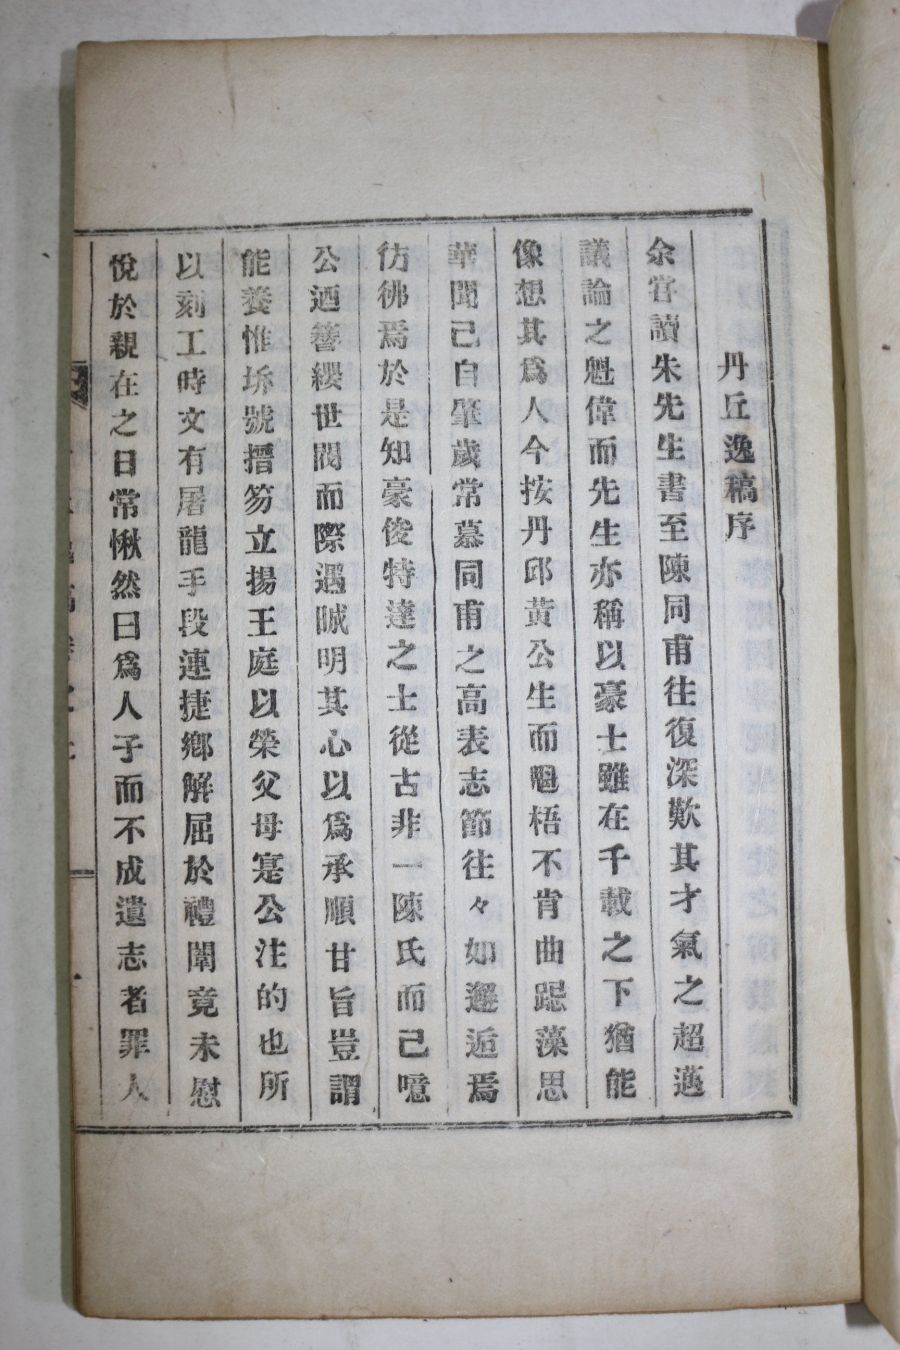 丹丘逸稿序
余嘗讀朱先生書至陳同甫往復深歎其才氣之超邁
議論之魁偉而先生亦稱以豪士雖在千載之下猶能
像想其爲人今按丹邱黃公生而魁梧不肯曲跽藻思
華聞已自肇歲常慕同甫之高表志節往々如邂逅焉
彷彿焉於是知豪俊特達之士從古非一陳氏而已噫
公迺簪纓世閥而際遇晠明其心以爲承順甘旨豈謂
能養惟拆號搢笏立揚王庭以榮父母寔公注的也所
以刻工時文有屠龍手段連捷鄉解屈於禮闈竟未慰
悅於親在之日常愀然曰爲人子而不成遺志者罪人